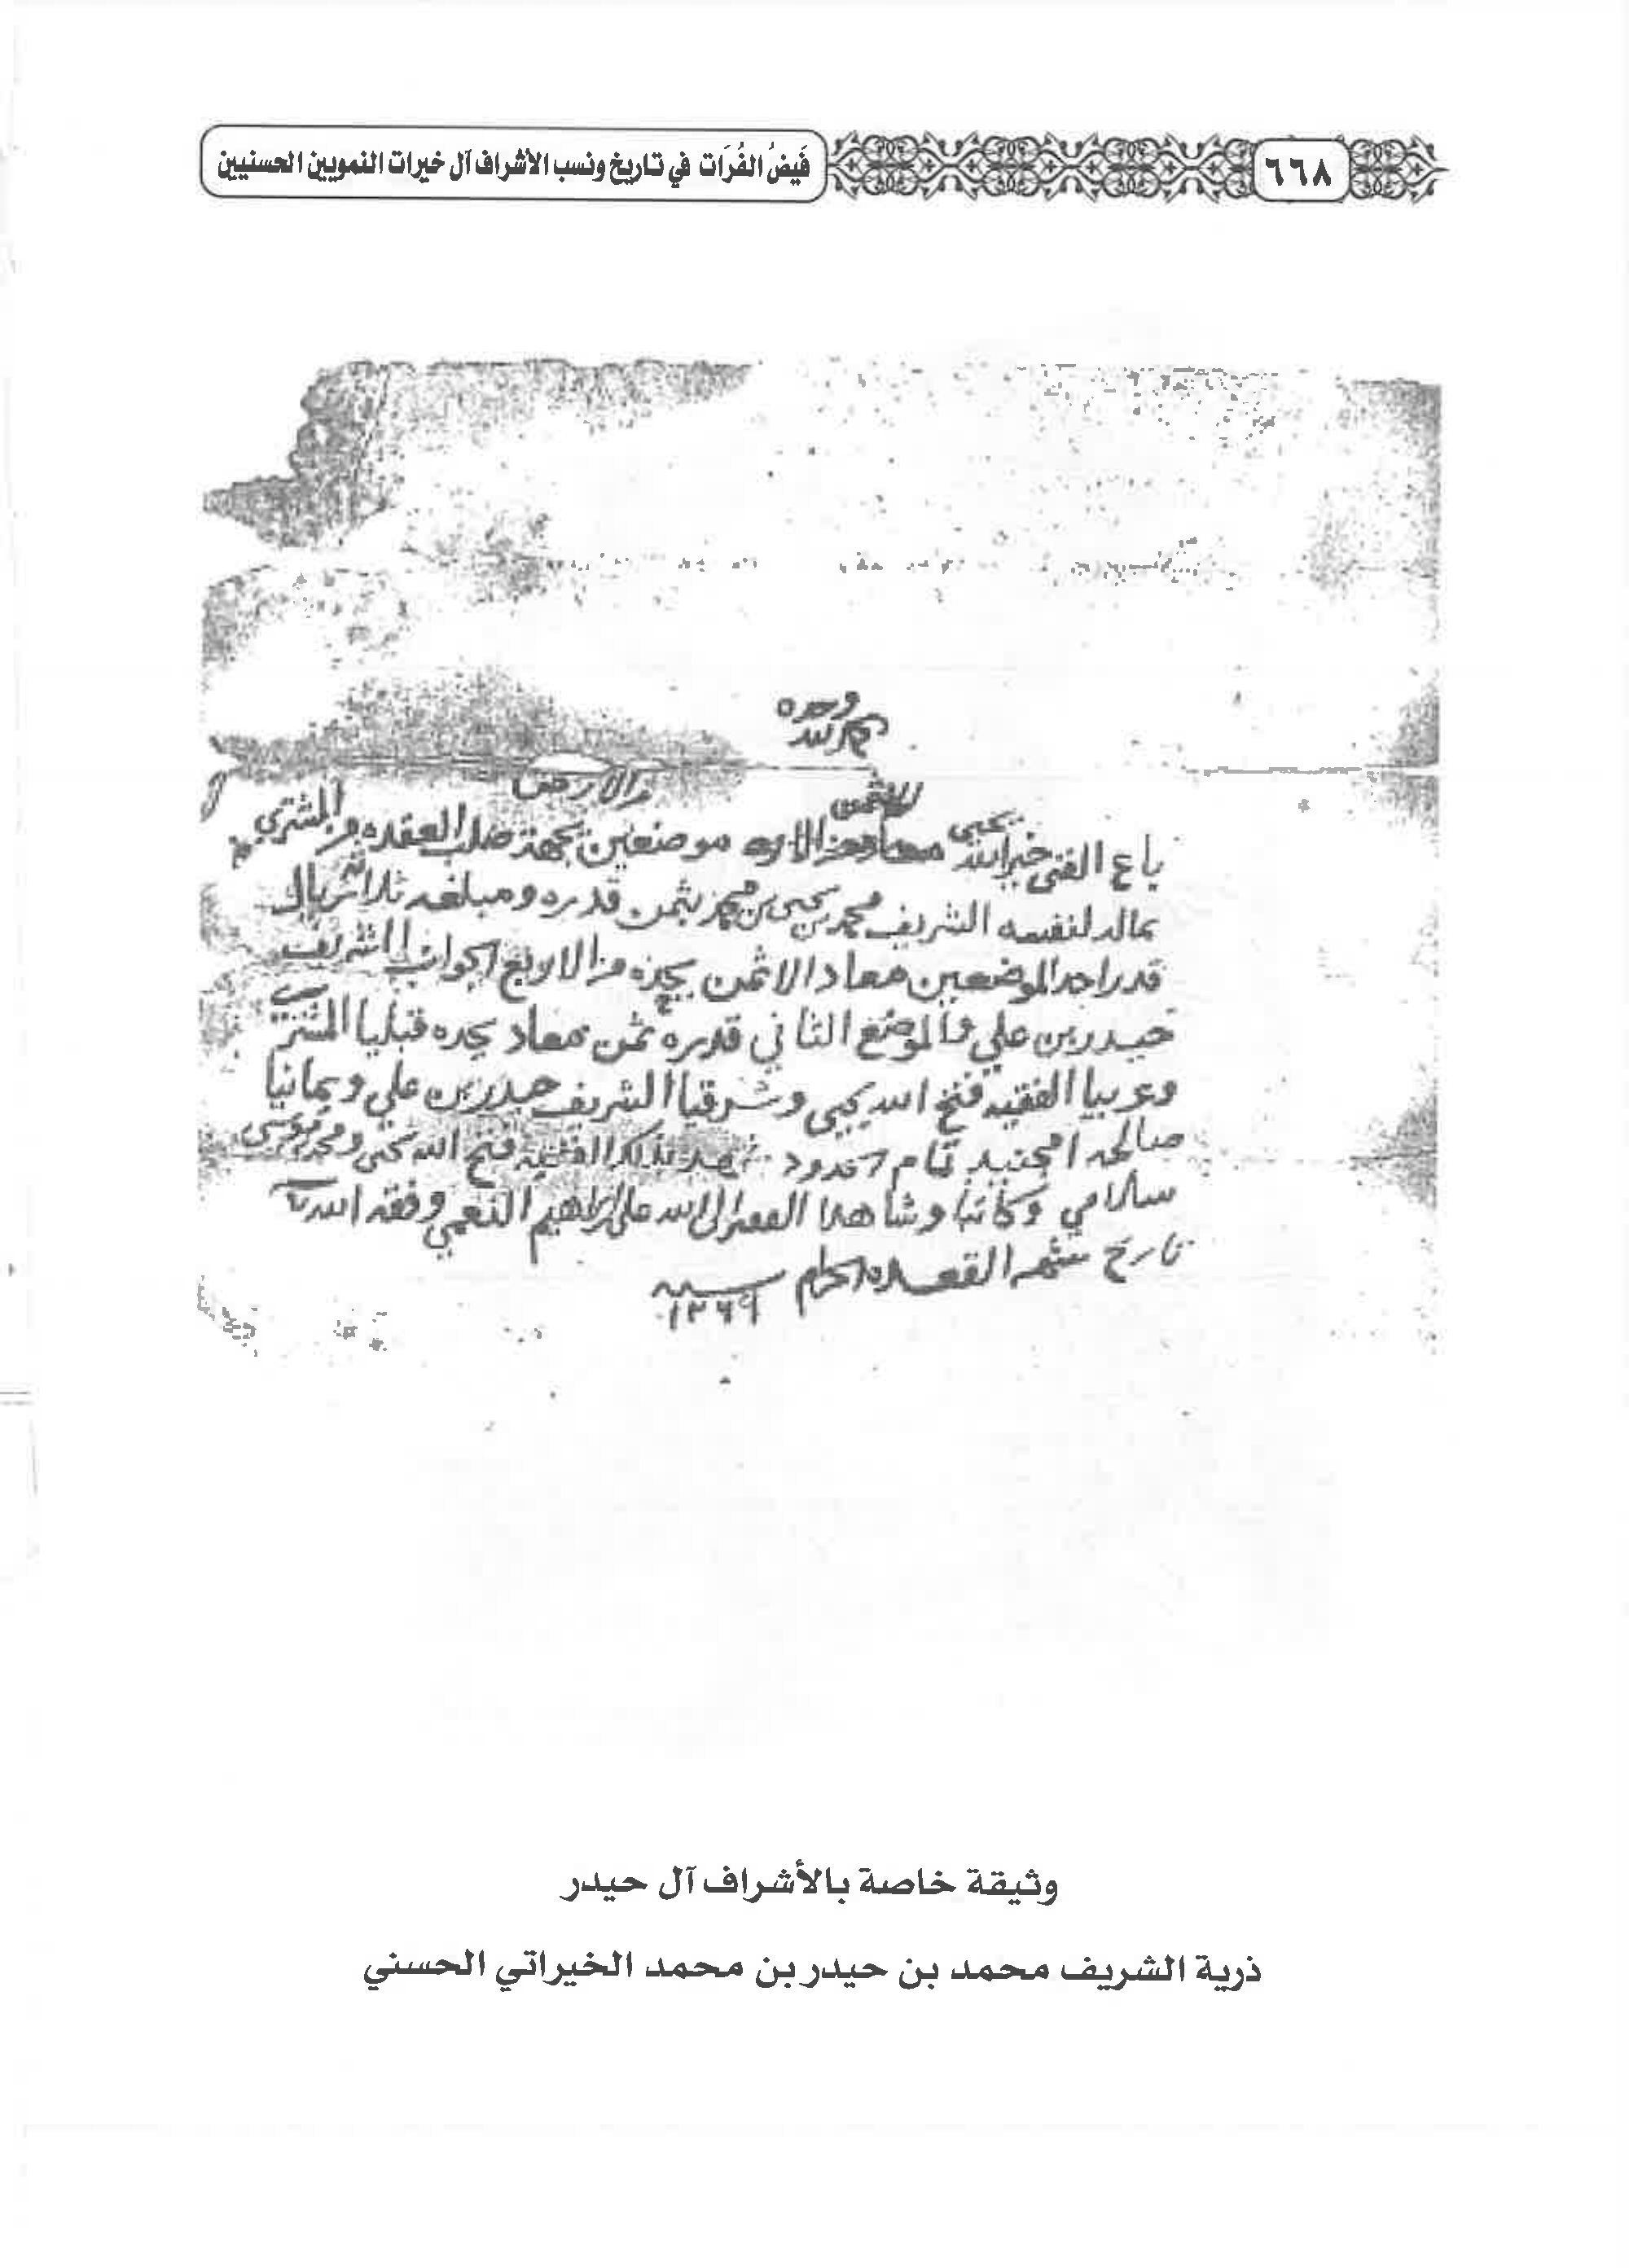 ٦٦٨
فَيضُ الفُرَات في تاريخ ونسب الأشراف آل خيرات النمويين الحسنيين
الحمد لله
وحده
الاثمن من الارض
باع الفقيه خير الله يحيى معاد موضعين بجهة صلب العقده من المشتري
بماله لنفسه الشريف محمد بن يحيى بن محمد بثمن قدره ومبلغه ثلاثة ريال
قدر احد الموضعين معاد الاثمن يحده من الاربع الجوانب الشريف
حيدر بن علي والموضع الثاني قدره ثمن معاد يحده قبليا المشتري
وغربيا الفقيه فتح الله يحيى وشرقيا الشريف حيدر بن علي ويمانيا
صالحه الجنيد تمام الحدود شهد بذلك الفقيه فتح الله يحيى ومحمد موسى
سلامي وكاتبا وشاهدا الفقير الى الله علي ابراهيم النعمي وفقه الله
تاريخ شهر القعده الحرام سنة ١٢٦٩
وثيقة خاصة بالأشراف آل حيدر
ذرية الشريف محمد بن حيدر بن محمد الخيراتي الحسني